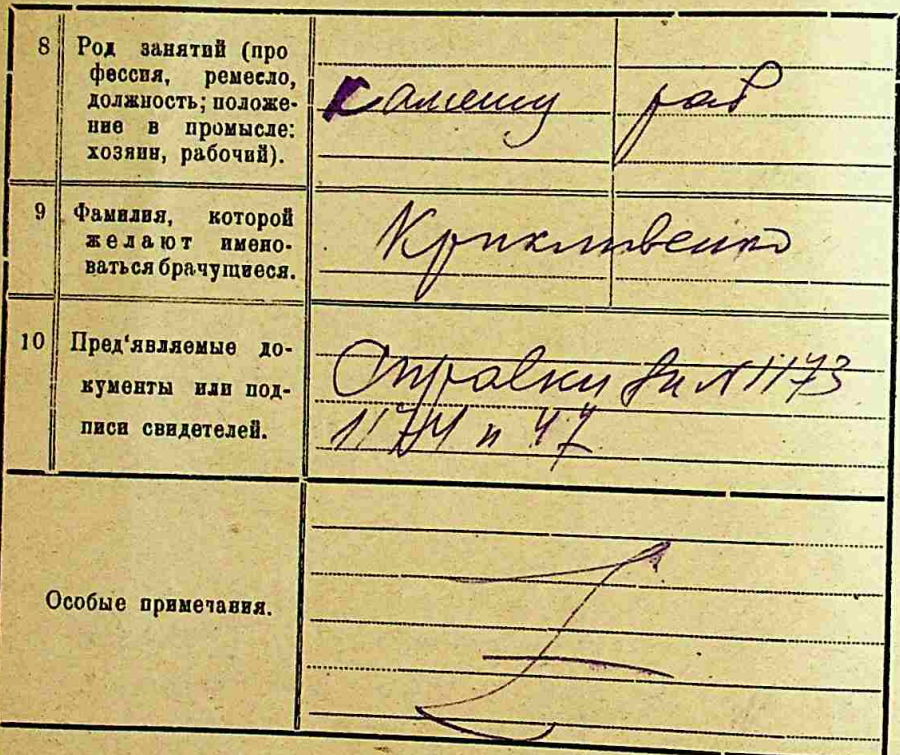 8 Род занятий (про
фессия, ремесло,
должность; положе-
ние в промысле:
хозяин, рабочий).
раб
9 Фамилия, которой
желают имено-
ваться брачущиеся.
Крикливенко
10 Пред'являемые до-
кументы или под-
писи свидетелей.
Справки за № 1173
1174 и 47
Особые примечания.